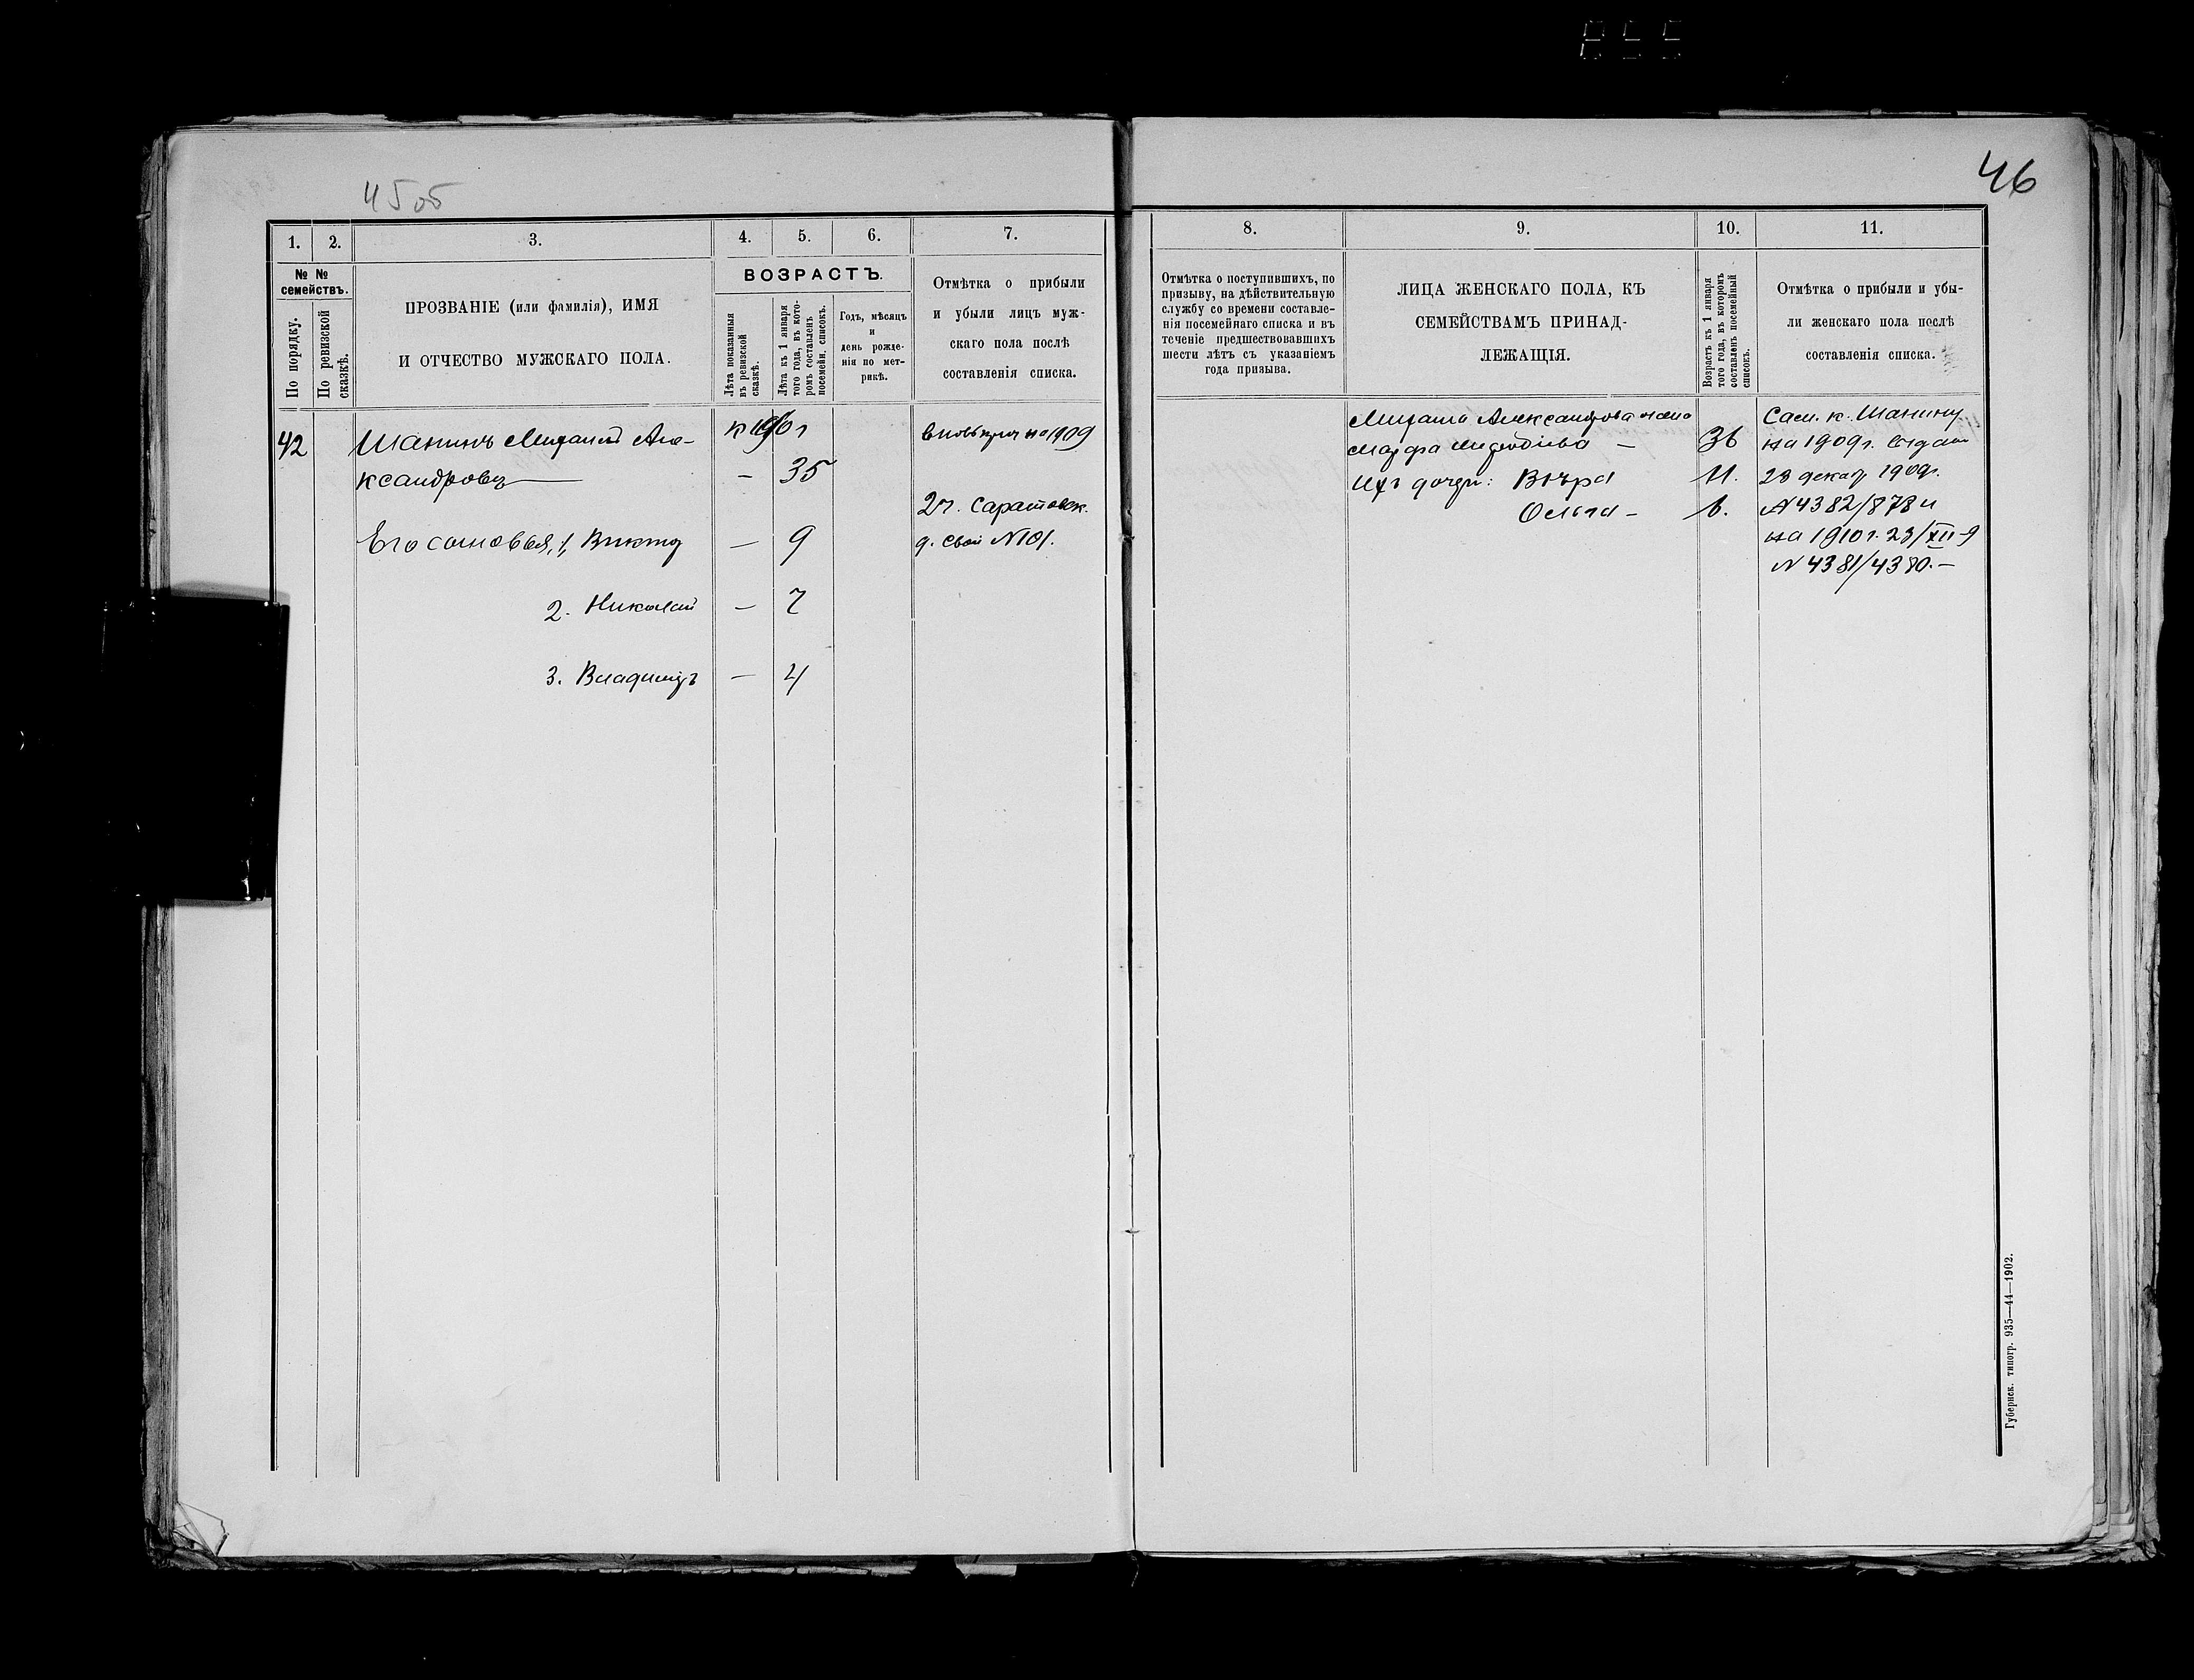 45 об
46
1. 2. 3. 4. 5. 6. 7.
№ № семействъ.
По порядку.
По ревизской сказкѣ.
ПРОЗВАНІЕ (или фамилія), ИМЯ
И ОТЧЕСТВО МУЖСКАГО ПОЛА.
ВОЗРАСТЪ.
Лѣта показанныя въ ревизской сказкѣ.
Лѣта къ 1 января того года, въ которомъ составленъ посемейн. списокъ.
Годъ, мѣсяцъ
и
день рожде-
нія по мет-
рикѣ.
Отмѣтка о прибыли
и убыли лицъ муж-
скаго пола послѣ
составленія списка.
42 Шанинъ Михаилъ Але-
ксандровъ — 35
Его сыновья, 1, Виктор — 9
2. Николай — 7
3. Владиміръ — 4
на 1909
2 ч. Саратовск.
д. свой № 101.
8. 9. 10. 11.
Отмѣтка о поступившихъ, по
призыву, на дѣйствительную
службу со времени составле-
нія посемейнаго списка и въ
теченіе предшествовавшихъ
шести лѣтъ съ указаніемъ
года призыва.
ЛИЦА ЖЕНСКАГО ПОЛА, КЪ
СЕМЕЙСТВАМЪ ПРИНАД-
ЛЕЖАЩІЯ.
Возрастъ къ 1 января того года, въ которомъ составленъ посемейный списокъ.
Отмѣтка о прибыли и убы-
ли женскаго пола послѣ
составленія списка.
Михаила Александрова жена
Марфа — 36
Ихъ дочери: Вѣра 11.
Ольга —
Сем. к. Шанину
на 1909 г. выдан
23 декаб 1909.
№ 4382/878 и
на 1910 г. 23/XII-9
№ 4381/4380. —
Губернск. типогр. 935—44—1902.